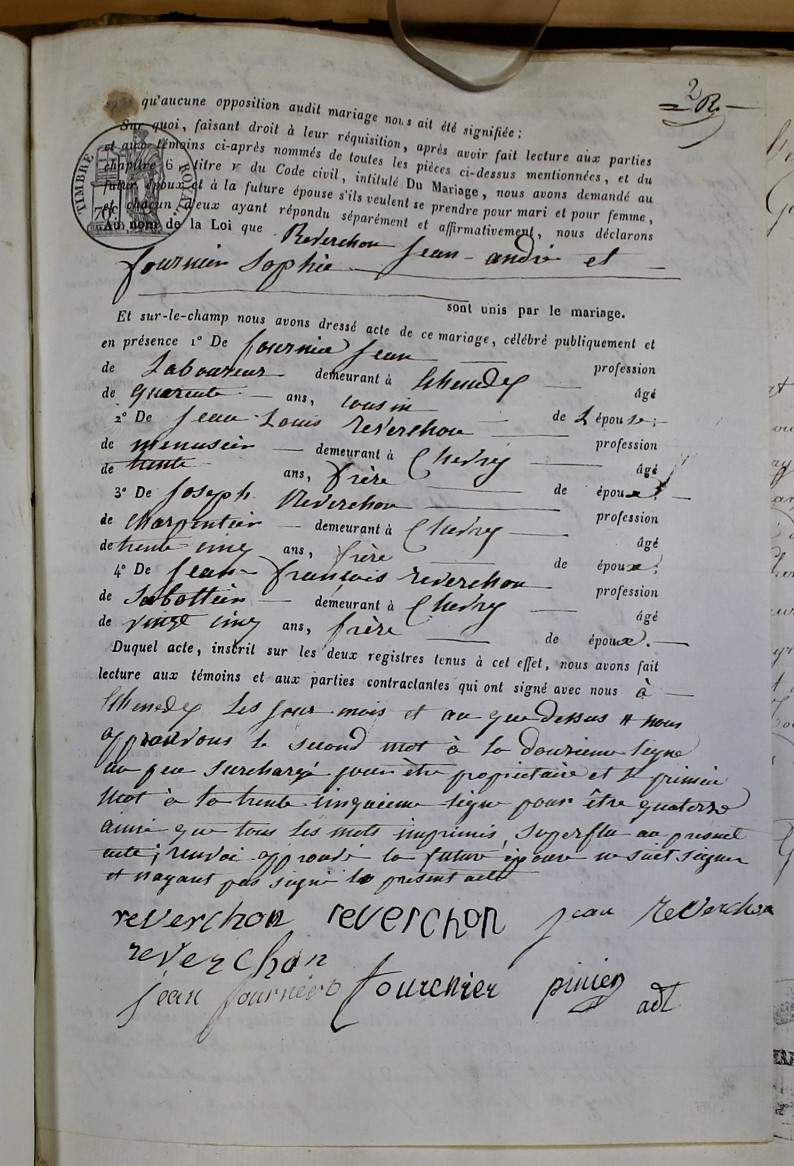 2 R.
qu'aucune opposition audit mariage nous ait été signifiée ;
Sur quoi, faisant droit à leur réquisition, après avoir fait lecture aux parties
et aux témoins ci-après nommés de toutes les pièces ci-dessus mentionnées, et du
chapitre 6 titre v du Code civil, intitulé Du Mariage, nous avons demandé au
futur époux et à la future épouse s'ils veulent se prendre pour mari et pour femme,
et chacun d'eux ayant répondu séparément et affirmativement, nous déclarons
Au nom de la Loi que Reverchon Jean-andré et
fournier Sophie
sont unis par le mariage.
TIMBRE ROYAL
70
Et sur-le-champ nous avons dressé acte de ce mariage, célébré publiquement et
en présence 1° De fournier Jean profession
de Laboureur demeurant à Echenevex âgé
de quarente ans, cousin de L épouse ;
2° De Jean Louis reverchon profession
de menusier demeurant à Chevry âgé
de trente ans, frère de époux ;
3° De Joseph Reverchon profession
de charpentier demeurant à Chevry âgé
de trente cinq ans, frère de époux ;
4° De Jean françois reverchon profession
de Sabottier demeurant à Chevry âgé
de vingt cinq ans, frère de époux.
Duquel acte, inscrit sur les deux registres tenus à cet effet, nous avons fait
lecture aux témoins et aux parties contractantes qui ont signé avec nous à
Echenevex les jour mois et an que dessus # nous
approuvons le second mot à la douzieme ligne
un peu surchargé pour être propietaire et le primier
mot à la trente cinquieme ligne pour être quatorze
ainsi que tous les mots imprimés, superflu au present
acte ; renvoi approuvé la future épouse ne sait signer
et nayant pas signé le present acte
reverchon reverchon jean reverchon
reverchon
jean fournier fournier adt